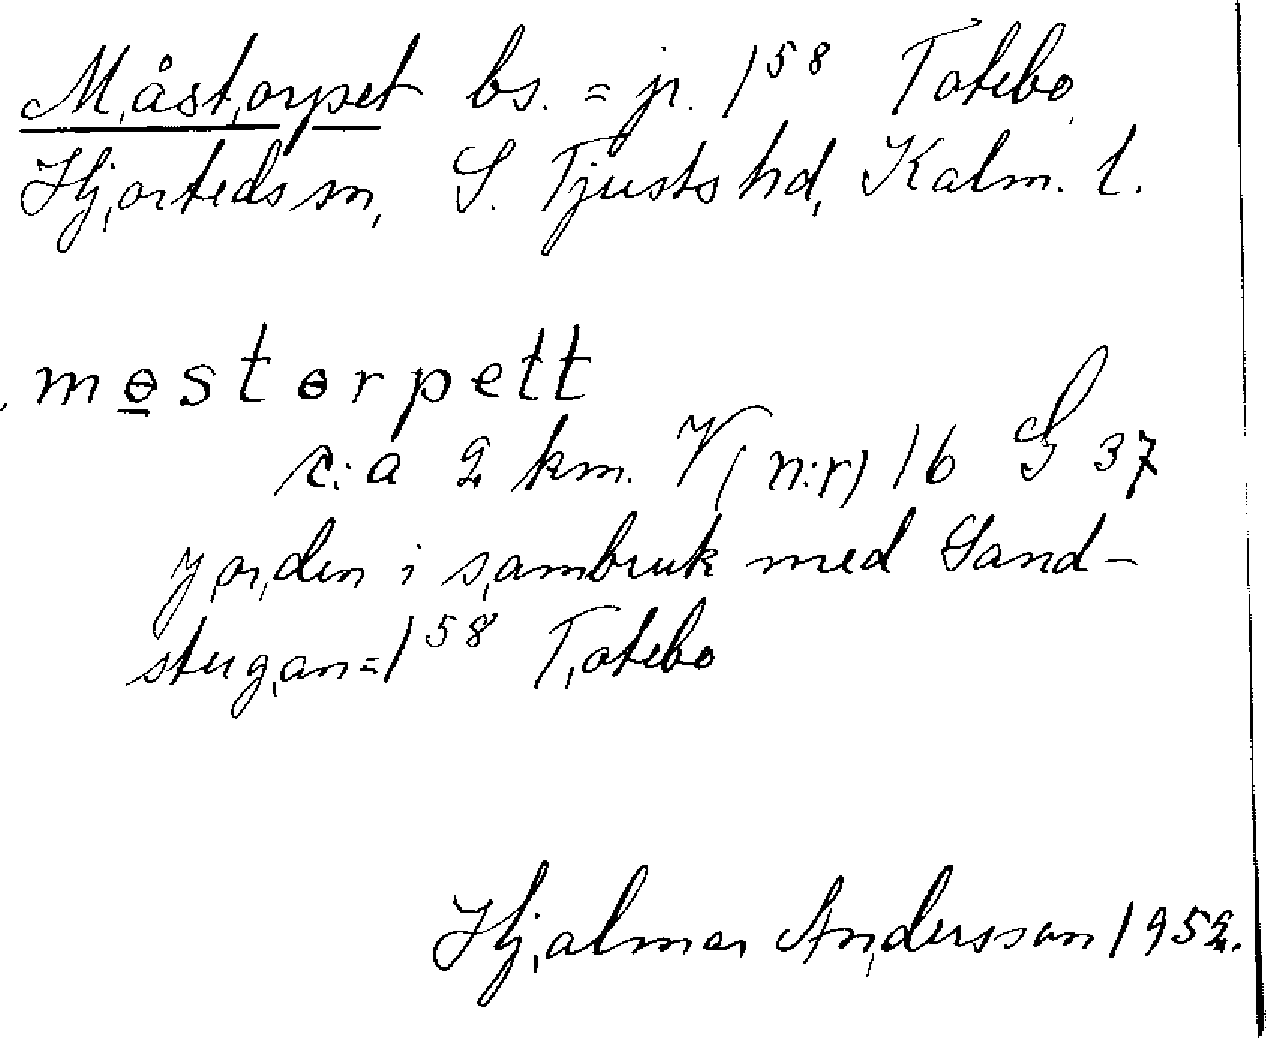 Måstorpet bs. = jr. 1⁵⁸ Totebo
Hjorteds sn, S. Tjusts hd, Kalm. l.
mɵstɵrpett
c:a 2 km. V( n:r) 16 G 37
Jorden i sambruk med Sand-
stugan=1⁵⁸ Totebo
Hjalmar Andersson 1952.